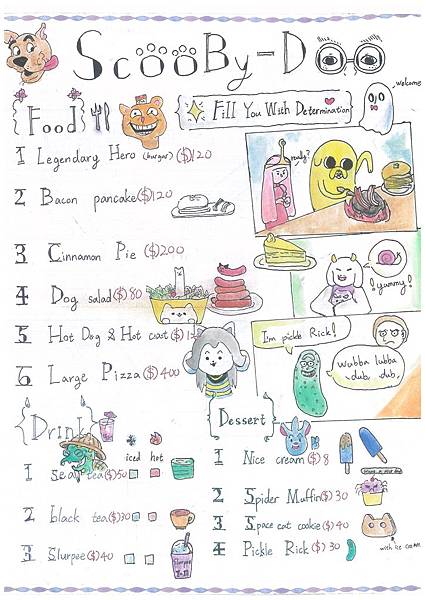 Scooby-Doo
welcome
Food
Fill You With Determination
1 Legendary Hero (burger) ($)120
really?
2 Bacon pancake($)120
3 Cinnamon Pie ($)200
4 Dog salad($)80
!yummy!
5 Hot Dog & Hot
I'm pickle Rick!
Wubba lubba
dub, dub,
6 Large Pizza($)400
Drink
iced hot
1 Sea tea($)50
2 black tea($)30
3 Slurpee($)40
Dessert
1 Nice cream($)8
2 Spider Muffin($)30
3 Space cat cookie($)40
with ice cream
4 Pickle Rick($)30